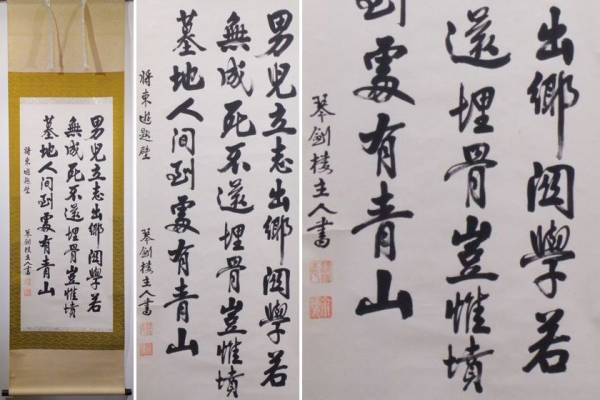 男兒立志出鄉関學若
無成死不還埋骨豈惟墳
墓地人間到處有青山
将東遊題壁
琴劍楼主人書
男兒立志出鄉関學若
無成死不還埋骨豈惟墳
墓地人間到處有青山
将東遊題壁
琴劍楼主人書
出鄉関學若
還埋骨豈惟墳
到處有青山
琴劍楼主人書